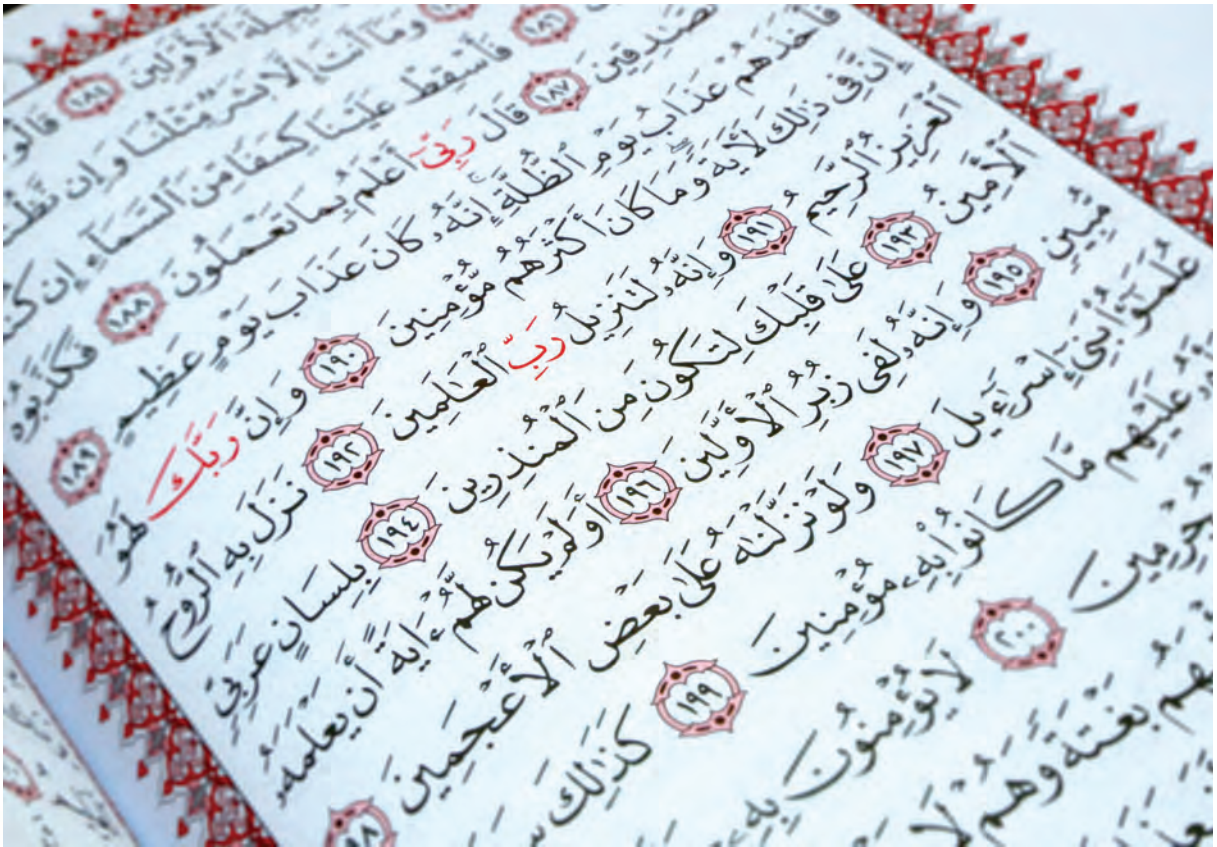 ٱلْأَوَّلِينَ ١٨٤
وَمَآ أَنتَ إِلَّا بَشَرٌ مِّثْلُنَا وَإِن
١٨٦ فَأَسْقِطْ عَلَيْنَا كِسَفًا مِّنَ ٱلسَّمَآءِ إِن
ٱلصَّٰدِقِينَ ١٨٧ قَالَ رَبِّىٓ أَعْلَمُ بِمَا تَعْمَلُونَ ١٨٨ فَكَذَّبُوهُ
فَأَخَذَهُمْ عَذَابُ يَوْمِ ٱلظُّلَّةِ إِنَّهُۥ كَانَ عَذَابَ يَوْمٍ عَظِيمٍ ١٨٩
إِنَّ فِى ذَٰلِكَ لَأٓيَةً وَمَا كَانَ أَكْثَرُهُم مُّؤْمِنِينَ ١٩٠ وَإِنَّ رَبَّكَ لَهُوَ
ٱلْعَزِيزُ ٱلرَّحِيمُ ١٩١ وَإِنَّهُۥ لَتَنزِيلُ رَبِّ ٱلْعَٰلَمِينَ ١٩٢ نَزَلَ بِهِ ٱلرُّوحُ
ٱلْأَمِينُ ١٩٣ عَلَىٰ قَلْبِكَ لِتَكُونَ مِنَ ٱلْمُنذِرِينَ ١٩٤ بِلِسَانٍ عَرَبِىٍّ
مُّبِينٍ ١٩٥ وَإِنَّهُۥ لَفِى زُبُرِ ٱلْأَوَّلِينَ ١٩٦ أَوَلَمْ يَكُن لَّهُمْ ءَايَةً أَن يَعْلَمَهُۥ
عُلَمَٰٓؤُا۟ بَنِىٓ إِسْرَٰٓءِيلَ ١٩٧ وَلَوْ نَزَّلْنَٰهُ عَلَىٰ بَعْضِ ٱلْأَعْجَمِينَ ١٩٨
عَلَيْهِم مَّا كَانُوا۟ بِهِۦ مُؤْمِنِينَ ١٩٩ كَذَٰلِكَ
٢٠٠ لَا يُؤْمِنُونَ بِهِۦ
بَغْتَةً وَهُمْ لَا